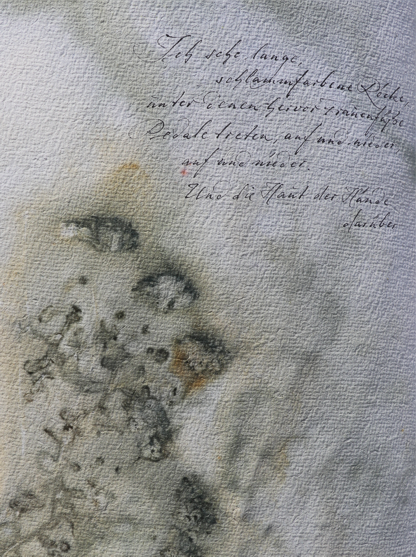 Ich sehe lange,
schlammfarbene Röcke,
unter denen hervor Frauenfüße
Pedale treten, auf und nieder
auf und nieder.
Und die Haut der Hände
darüber